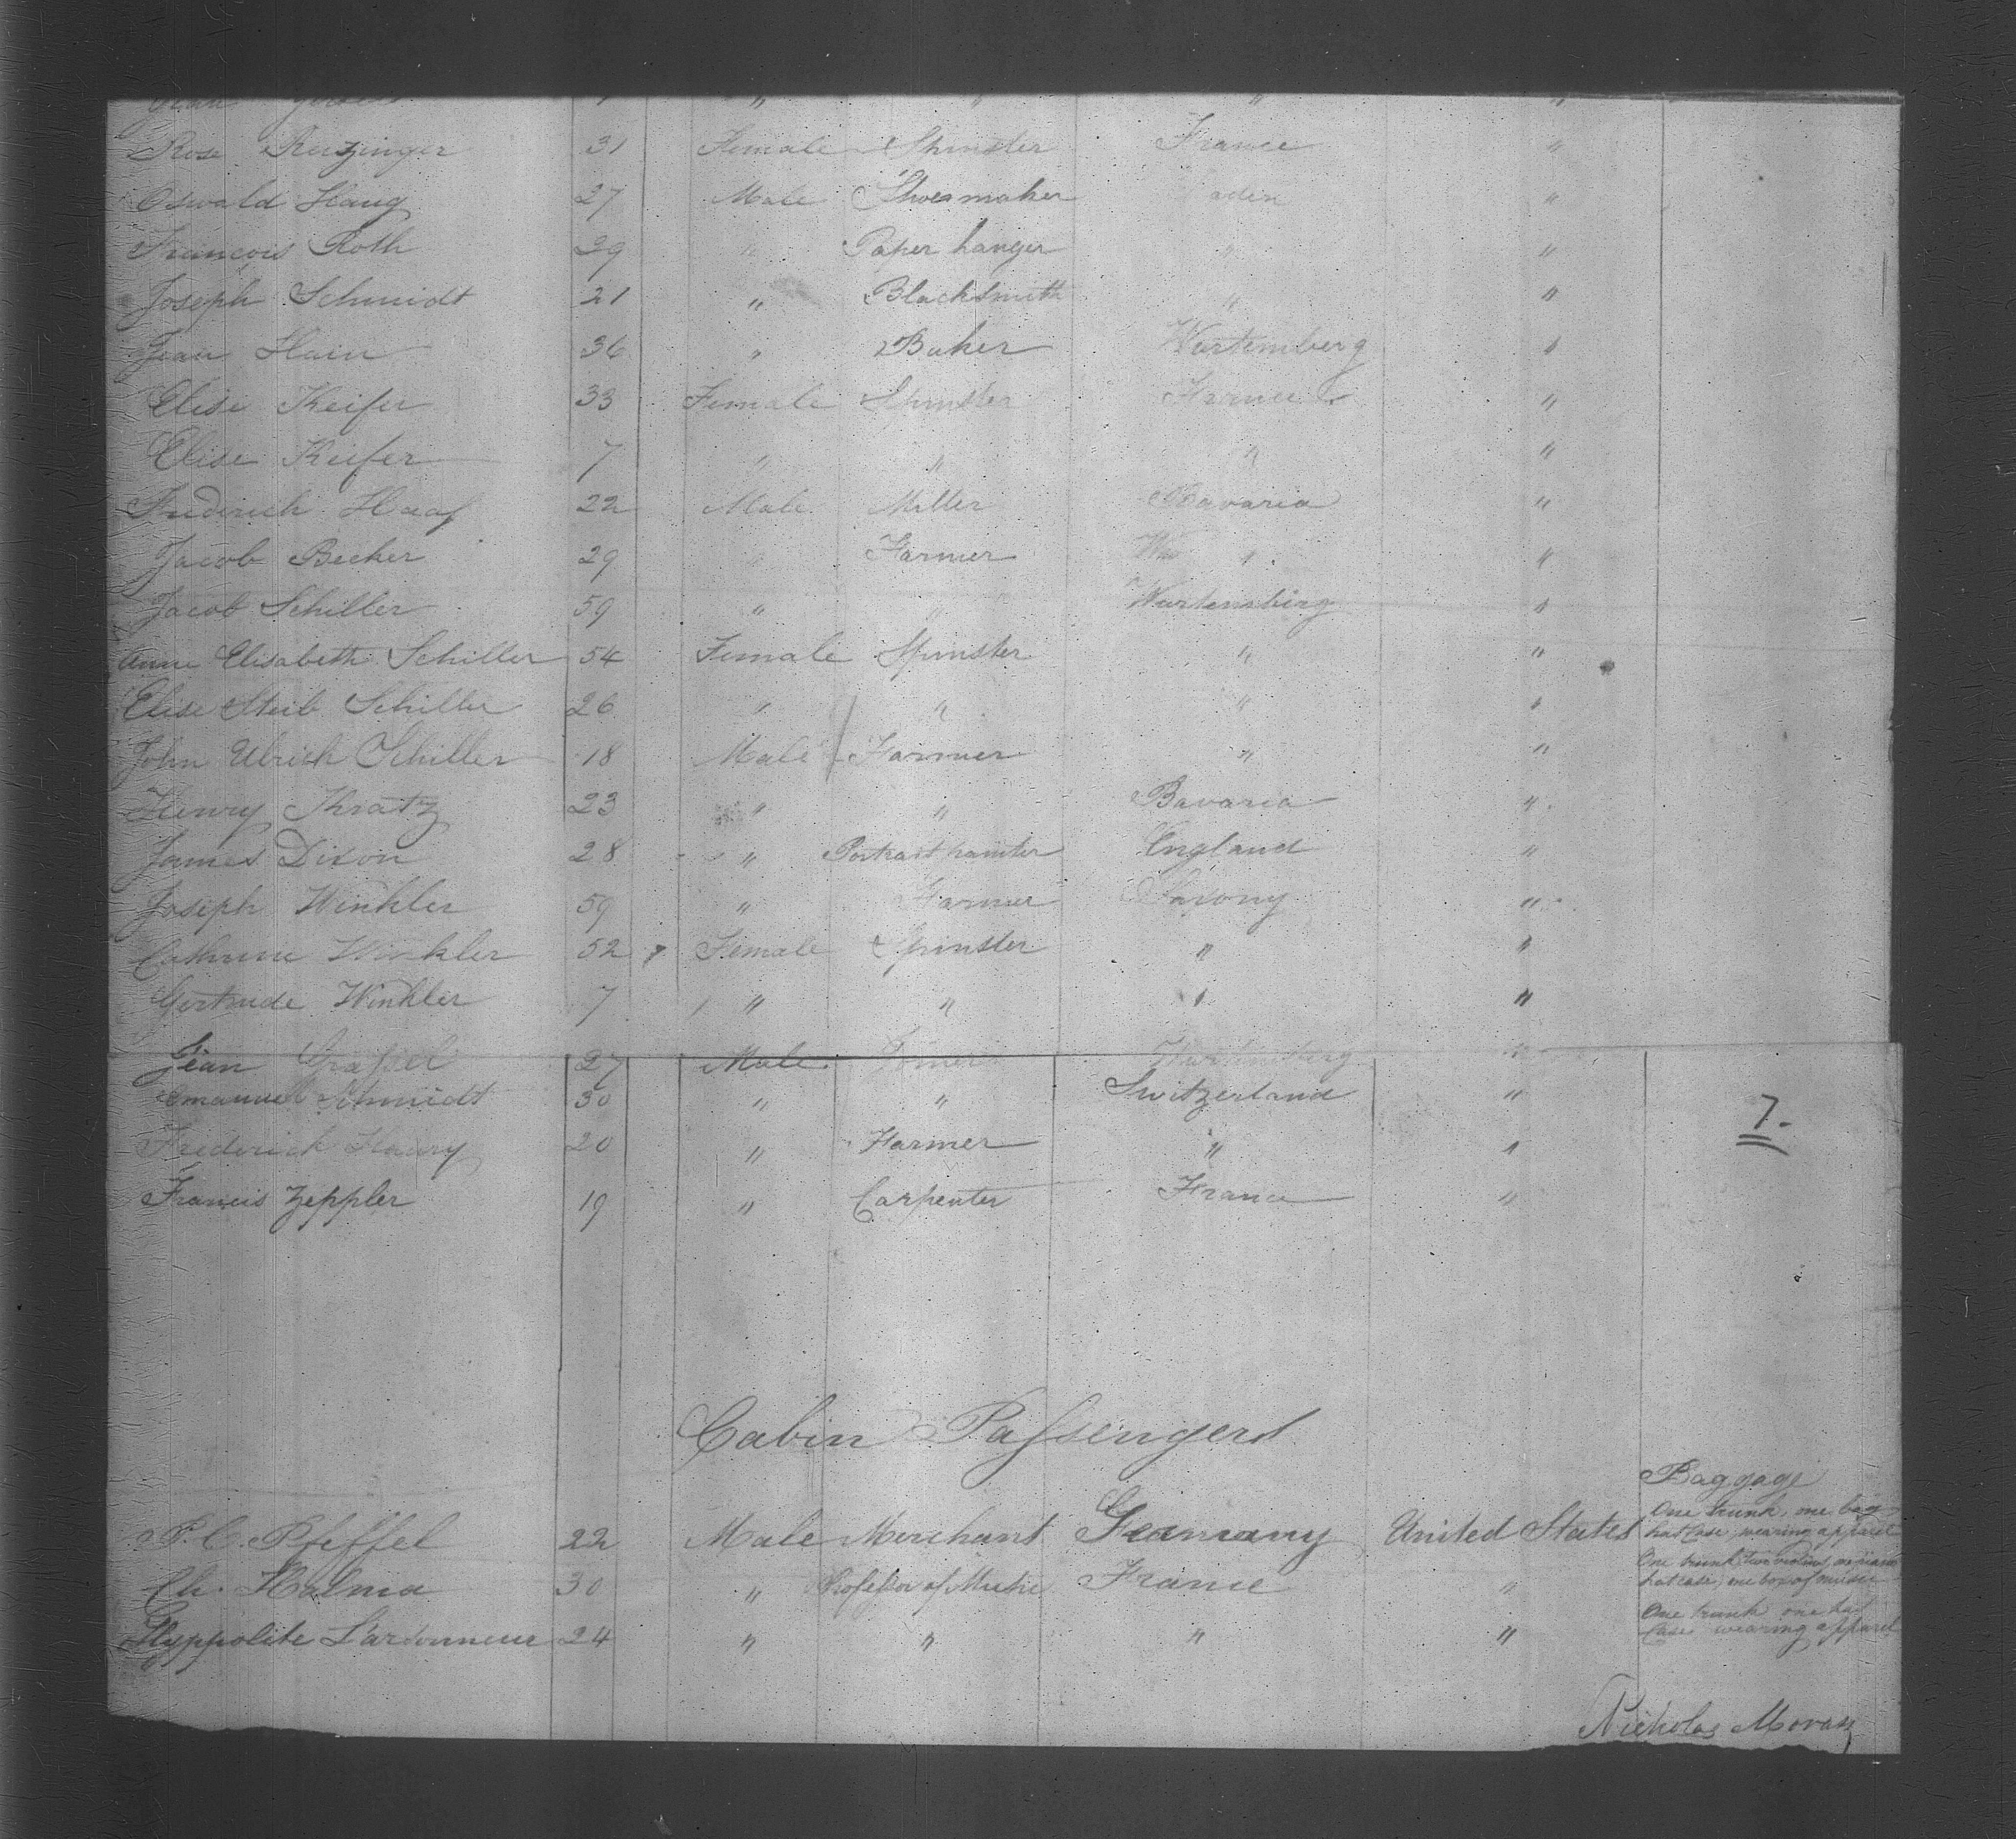 Rose Reizinger 31 Female Spinster France "
Oswald Haug 27 Male Shoemaker aden "
Francois Roth 29 " Paper hanger " "
Joseph Schmidt 21 " Blacksmith " "
Jean Hain 36 " Baker Wurtemberg "
Elise Keifer 33 Female Spinster France "
Elise Keifer 7 " " " "
Frederich Haaf 22 Male Miller Bavaria "
Jacob Becker 29 " Farmer " "
Jacob Schiller 59 " " Wurtemberg "
Anne Elisabeth Schiller 54 Female Spinster " "
Elise Steib Schiller 26 " " " "
John Ulrich Schiller 18 Male Farmer " "
Henry Kratz 23 " " Bavaria "
James Dixon 28 " Portrait painter England "
Joseph Winkler 59 " Farmer Saxony "
Catherine Winkler 52 Female Spinster " "
Gertrude Winkler 7 " " " "
Jean 27 Male Wurtemberg "
Emanuel Schmidt 30 " " Switzerland "
7.
Frederich Haury 20 " Farmer " "
Francis Zeppler 19 " Carpenter France "
Cabin Passengers
Baggage
P. C. Pfeffel 22 Male Merchant Germany United States One trunk, one bag
hat case, wearing apparel
Ch. Halma 30 " Professor of Music France " One trunk, two violins,
hat case, one box of music
Hyppolite Lardonneur 24 " " " " One trunk one hat
Case wearing apparel
Nicholas Moran